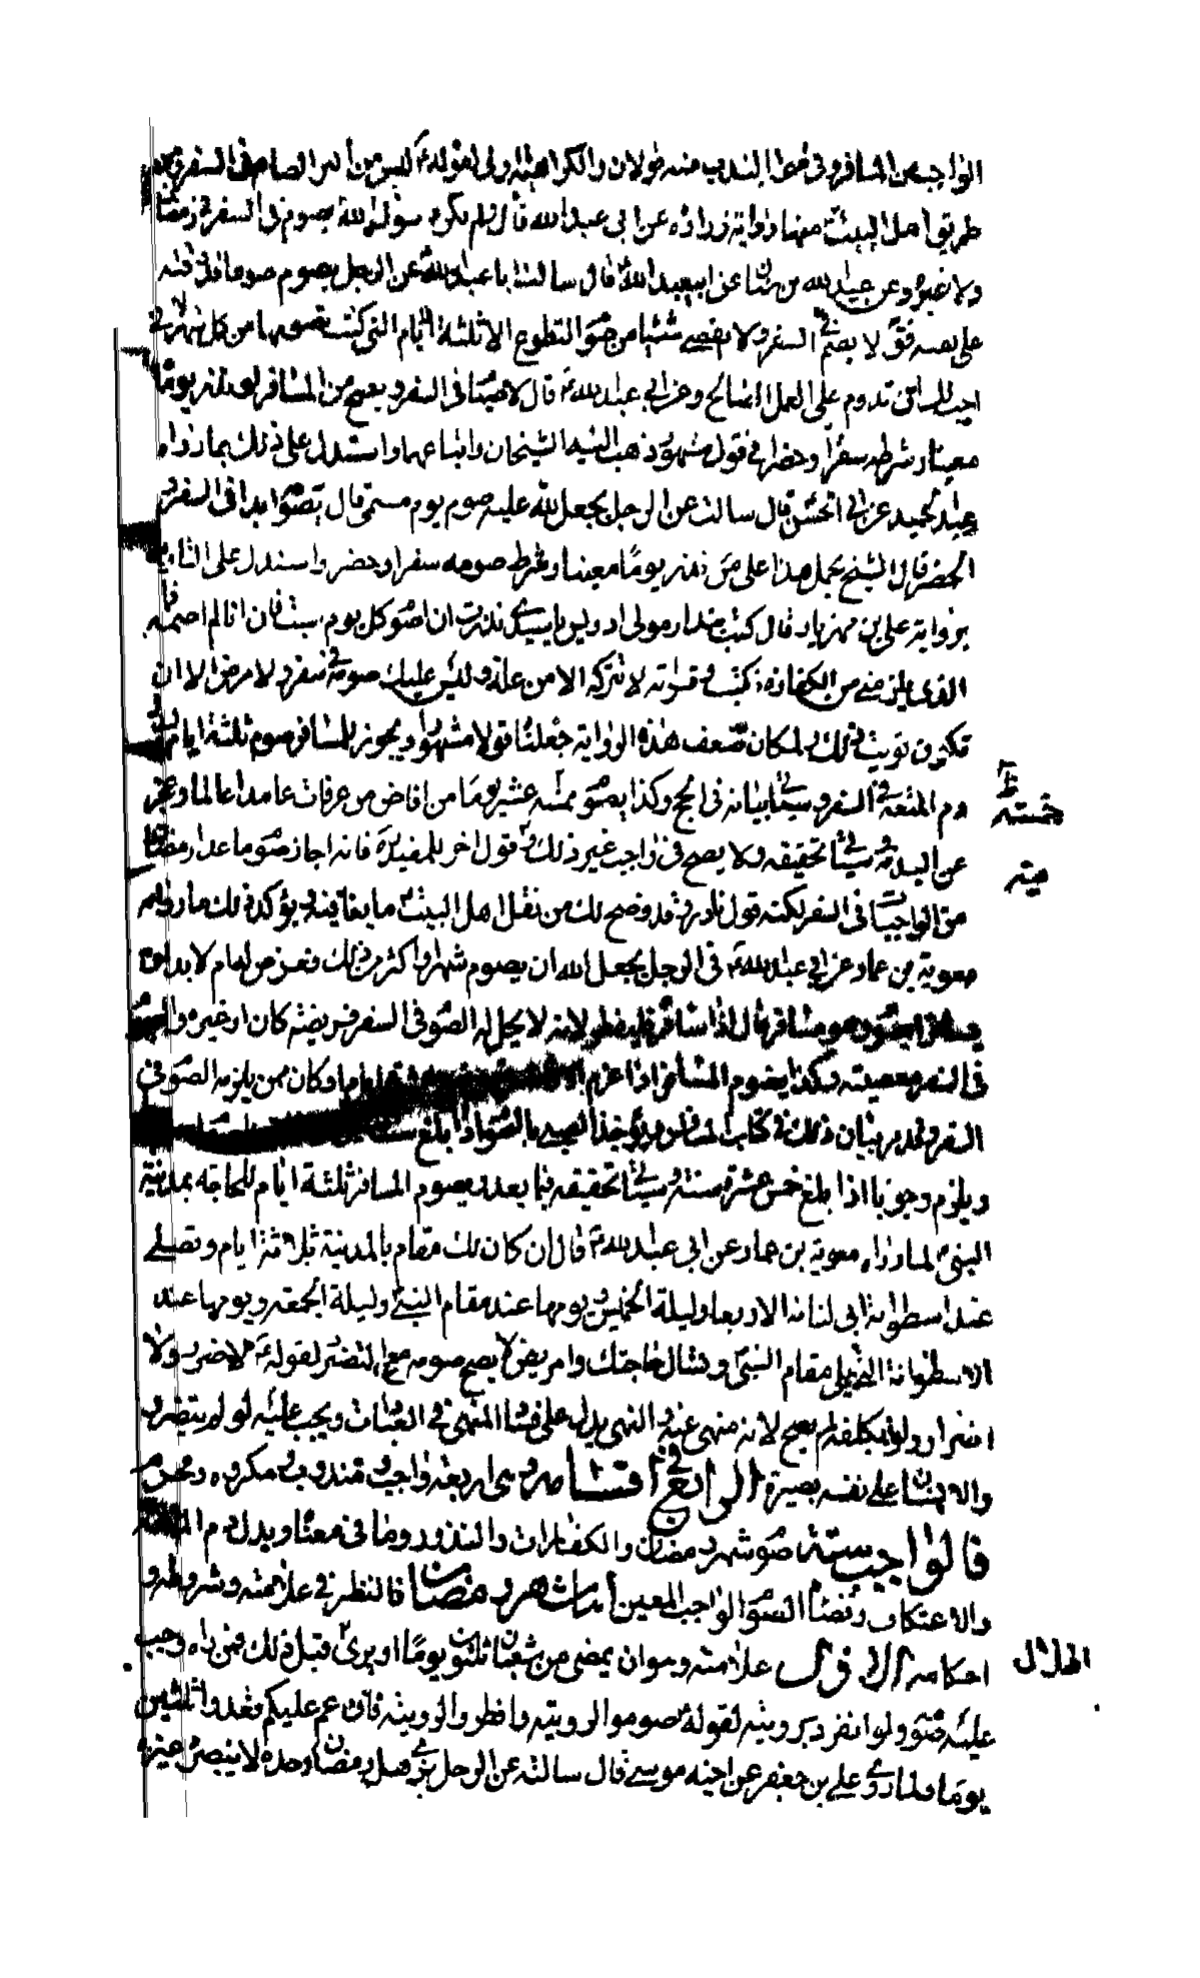 الواجب من المسافر وفى صحة الندب منه قولان والكراهية اولى لقوله ع ليس من البر الصيام فى السفر ومن
طريق اهل البيت ع منها رواية زرارة عن ابى عبدالله قال لم يكن رسول الله يصوم فى السفر فى رمضان
ولا غيره وعن عبدالله بن سنان عن ابيعبدالله قال سالت ابا عبدالله عن الرجل يصوم صوما قد وقته
على نفسه فق لا يصم فى السفر ولا يقضى شيئا من صوم التطوع الا الثلثة الايام التى كنت تصومها من كل شهر
احب لك ان تدوم على العمل الصالح وعن ابى عبدالله ع قال فى السفر ويصح من المسافر لو نذر يوما
معينا وشرطه سفرا وحضرا فى قول مشهور ذهب اليه الشيخان واتباعهما واستدل على ذلك بما رواه
عبد الحميد عن ابى الحسن قال سالت عن الرجل يجعل لله عليه صوم يوم مسمى قال يصوم ابدا فى السفر و
الحضر قال الشيخ يحمل هذا على من نذر يوما معينا وشرط صومه سفرا وحضر واستدل على التاويل
برواية على بن مهزيار قال كتب بندار مولى ادريس يا سيدى نذرت ان اصوم كل يوم سبت فان انا لم اصمه
الذى يلزمنى من الكفارة فكتب وقراته لا تتركه الا من علة وليس عليك صومه فى سفر ولا مرض الا ان
تكون نويت ذلك ولمكان ضعف هذه الرواية جعلناه قولا مشهورا ويجوز للمسافر صوم ثلثة ايام
دم المتعة فى السفر وسياتى بيانه فى الحج وكذا يصوم ثمنية عشر يوما من افاض من عرفات عامدا عالما وعجز
عن البدنة وسياتى تحقيقه ولا يصح فى واجب غير ذلك وفى قول اخر للمفيد ره فانه اجاز صوم ما عدا رمضان
من الواجبات فى السفر لكنه قول نادر وقد وضح لك من نقل اهل البيت ع ما ينافيه ويؤكد ذلك ما رواه
معوية بن عمار عن ابى عبدالله ع فى الرجل يجعل لله ان يصوم شهرا او اكثر من ذلك فعرض له امر لا بد له
يسافر ايصوم وهو مسافر قال اذا سافر فليفطر لانه لا يحل له الصوم فى السفر فريضة كان او غيره والصوم
فى السفر معصية وكذا يصوم المسافر اذا عزم وكان ممن يلزمه الصوم فى
السفر وقد مر بيان ذلك فى كتاب المسافر ويؤخذ الصبى بالصوم اذا بلغ
ويلزم وجوبا اذا بلغ خمس عشرة سنة وسياتى تحقيقه فيما بعد ويصوم المسافر ثلثة ايام للحاجة بمدينة
النبى ص لما رواه معوية بن عمار عن ابى عبدالله ع قال ان كان لك مقام بالمدينة ثلثة ايام وتصلى
عند اسطوانة ابى لبابة الاربعا وليلة الخميس ويومها عند مقام النبى ص وليلة الجمعة ويومها عند
الاسطوانة التى يلى مقام النبى ص وتسال حاجتك والمريض لا يصح صومه مع التضرر لقوله ع لا ضرر ولا
اضرار ولو تكلفه لم يصح لانه منهى عنه والنهى يدل على فساد المنهى فى العبادات ويجب عليه لو لم يتضرر
والانسان على نفسه بصيرة الرابع فى اقسامه وهى اربعة واجب ومندوب ومكروه ومحرم
فالواجب ستة صوم شهر رمضان والكفارات والنذور وما فى معناه وبدل دم المتعة
والاعتكاف وقضاء الصوم الواجب المعين اما شهر رمضان فالنظر فى علامته وشروطه و
احكامه الاول علامته وهو ان يمضى من شعبان ثلثون يوما او يرى قبل ذلك فمن راه وجب
عليه صومه ولو انفرد برويته لقوله ص صوموا لرويته وافطروا لرويته فان غم عليكم فعدوا ثلثين
يوما ولما روى على بن جعفر عن اخيه موسى ع قال سالته عن الرجل يرى هلال رمضان وحده لا يبصره غيره
خمسة
الهلال